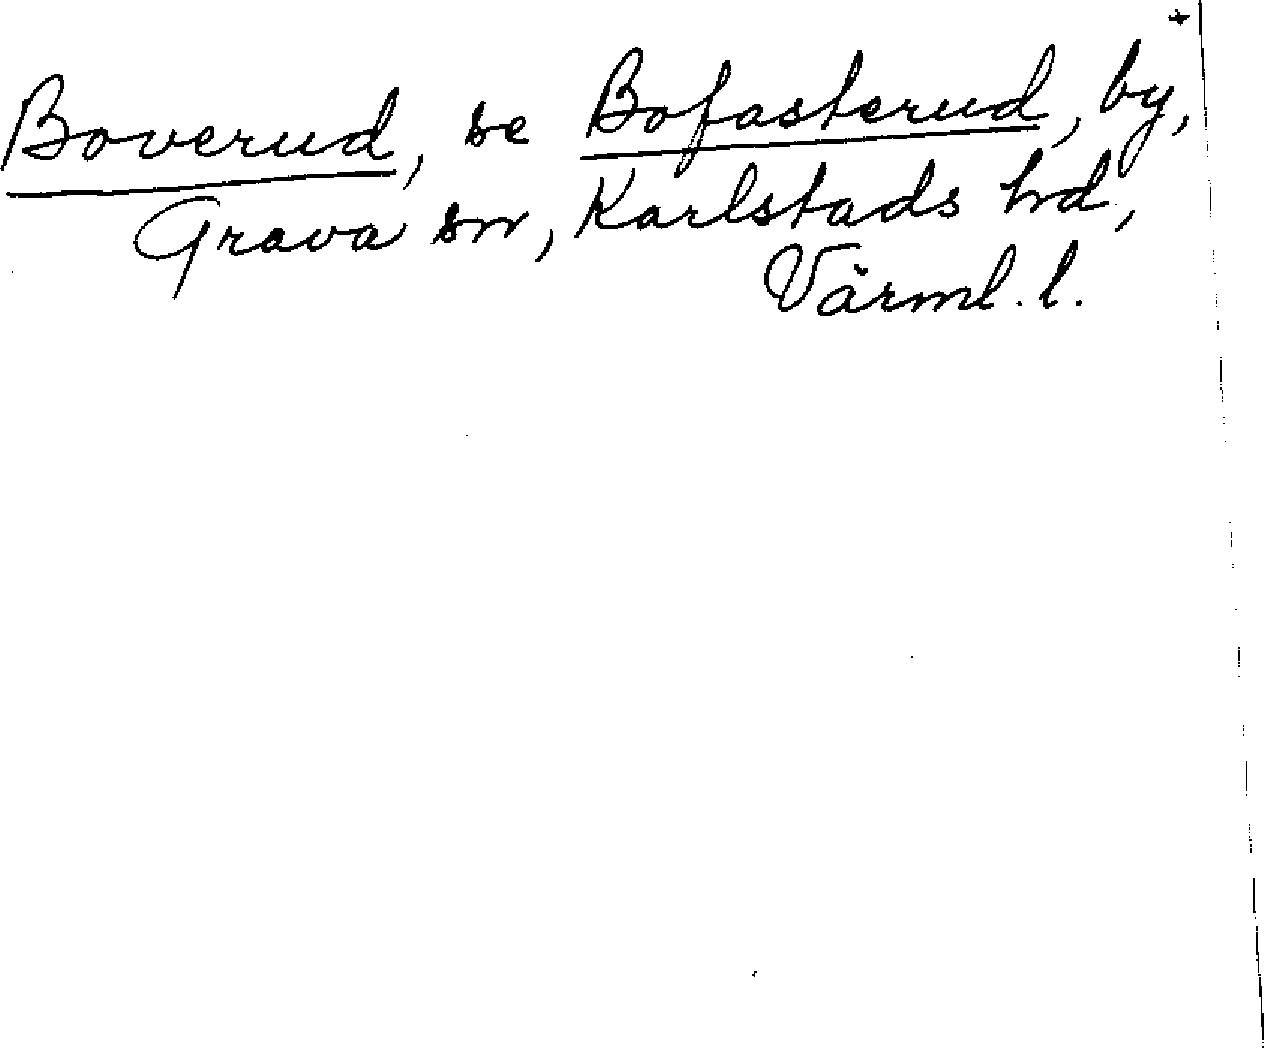 Boverud, se Bofasterud, by,
Grava sn, Karlstads hd,
Värml. l.